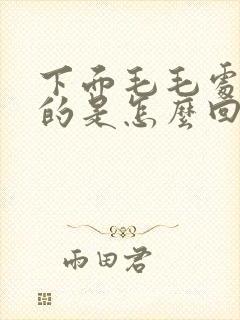 下面毛毛處
的是怎麼回
雨田君